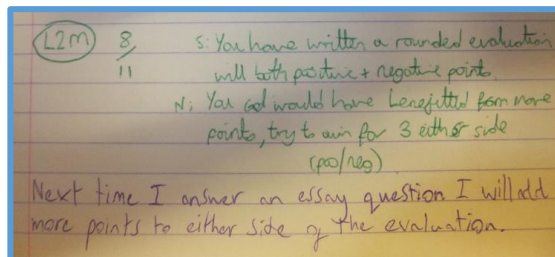 L2M 8/11 S: You have written a rounded evaluation
will both positive + negative points.
N: You would have benefitted from more
points, try to aim for 3 either side
(pos/neg)
Next time I answer an essay question I will add
more points to either side of the evaluation.